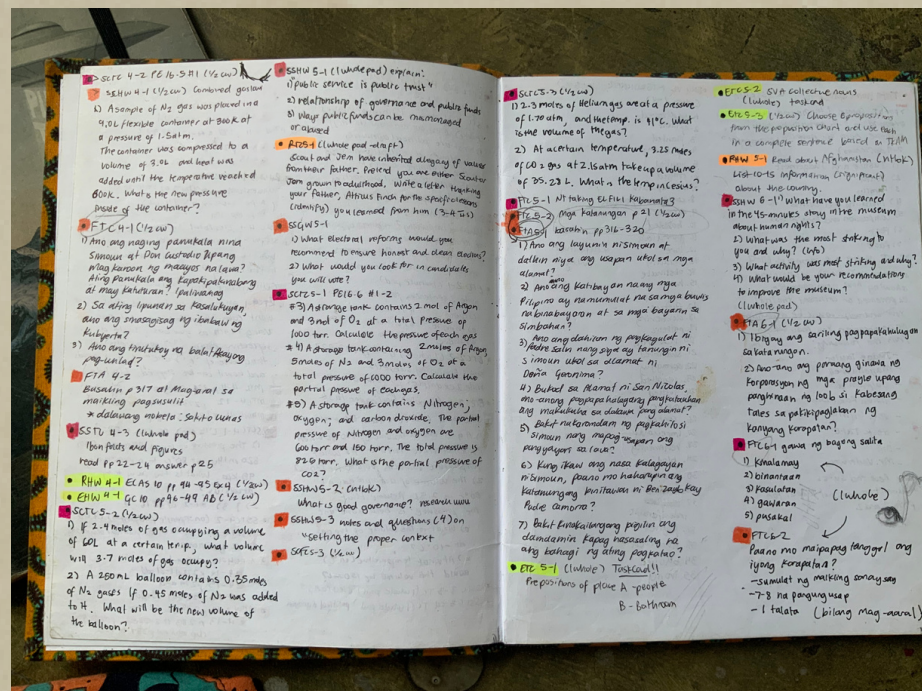 SCTC 4-2 PE 16.5 #1 (1/2 cw)
SSHW 4-1 (1/2 cw) Combined gas law
A sample of N2 gas was placed in a
9.0L flexible container at 300K at
a pressure of 1.5 atm.
The container was compressed to a
volume of 3.0L and heat was
added until the temperature reached
600K. What is the new pressure
inside of the container?
FTC 4-1 (1/2 cw)
1) Ano ang naging panukala nina
Simoun at Don Custodio upang
magkaroon ng maayos na lawa?
Aling panukala ang kapakipakinabang
at may katuturan? Ipaliwanag
2) Sa ating lipunan sa kasalukuyan,
ano ang sinasagisag ng ibabaw ng
kubyerta?
3) Ano ang tinutukoy na balat-kayong
pag-unlad?
FTA 4-2
Basahin p 317 at Mag-aral sa
maikling pagsusulit
SSTC 4-3 (1 whole pad)
10 on facts and figures
read pp 22-24 answer p 25
RHW 4-1 ELAS 10 pp 94-95 Ex 4 (1/2 cw)
EHW 4-1 GC 10 pp 46-49 AB (1/2 cw)
SCTC 5-2 (1/2 cw)
1) If 2.4 moles of gas occupying a volume
of 60L at a certain temp, what volume
will 3.7 moles of gas occupy?
2) A 250mL balloon contains 0.35 moles
of N2 gases If 0.45 moles of N2 was added
to it. What will be the new volume of
the balloon?
SSHW 5-1 (1 whole pad) explain:
1) "public service is public trust"
2) relationship of governance and public funds
3) Ways public funds can be mismanaged
or abused
RTC 5-1 (1 whole pad - draft)
Scout and Jem have inherited a legacy of values
from their father. Pretend you are either Scout or
Jem grown to adulthood. Write a letter thanking
your father, Atticus Finch for the specific lessons
(identify) you learned from him (3-4 TS)
SSGW 5-1
1) What electoral reforms would you
recommend to ensure honest and clean elections?
2) What would you look for in candidates
you will vote?
SCTC 5-1 PE 16.6 #1-2
#3) A storage tank contains 2 mol of Argon
and 3 mol of O2 at a total pressure of
1000 torr. Calculate the pressure of each gas
#4) A storage tank containing 2 moles of Argon,
5 moles of N2 and 3 moles of O2 at a
total pressure of 1000 torr. Calculate the
partial pressure of each gas.
#5) A storage tank contains Nitrogen;
oxygen; and carbon dioxide. The partial
pressure of Nitrogen and oxygen are
600 torr and 150 torr. The total pressure is
825 torr. What is the partial pressure of
CO2?
SSHW 5-2 (ntbk)
What is good governance? research
SSHW 5-3 notes and questions (4) on
"setting the proper context
SCTC 5-3 (1/2 cw)
SCTC 5-3 (1/2 cw)
1) 2.3 moles of Helium gas are at a pressure
of 1.70 atm, and the temp. is 41°C. What
is the volume of the gas?
2) At ascertain temperature, 3.25 moles
of CO2 gas at 2.15 atm take up a volume
of 35.28 L. What is the temp in Cesius?
FTC 5-1 NT taking EL Fili Kabanata 3
FTC 5-2) mga katanungan p 21 (1/2 cw)
FTA 5-1 basahin pp 316-320
1) Ano ang layunin ni Simoun at
dalhin niya ang usapan ukol sa mga
alamat?
2) Ano ang katibayan na ang mga
Pilipino ay namumulat na sa mga buwis
na binabayaran at sa mga bayarin sa
simbahan?
3) Ano ang dahilan ng pagkagulat ni
Padre Salvi nang siya ay tanungin ni
Simoun ukol sa alamat ni
Doña Geronima?
4) Bukod sa Alamat ni San Nicolas,
ano-anong pagpapahalagang pangkatauhan
ang makukuha sa dalawa pang alamat?
5) Bakit naturandam ng pagkahilo si
Simoun nang mapag-usapan ang
pangyayari sa lawa?
6) Kung ikaw ang nasa kalagayan
ni Simoun, paano mo haharapin ang
katanungang binitawan ni Ben Zayb kay
Padre Camorra?
7) Bakit kinakailangang pigilin ang
damdamin kapag nasasaling na
ang bahagi ng ating pagkatao?
ETC 5-1 (1 whole) Taskcard!!
Prepositions of place A - people
B - Bathroom
ETC 5-2 SVA collective nouns
(1 whole) taskcard
ETC 5-3 (1/2 cw) Choose 6 preposition
from the preposition chart and use each
in a complete sentence based on TKAM
RHW 5-1 Read about Afghanistan (ntbk)
List 10-15 information
about the country.
SSHW 6-1 1) What have you learned
in the 45-minutes stay in the museum
about human rights?
2) What was the most striking to
you and why?
3) What activity was most striking and why?
4) What would be your recommendations
to improve the museum?
(1 whole pad)
FTA 6-1 (1/2 cw)
1) Ibigay ang sariling pagpapakahulugan
sa katarungan.
2) Ano-ano ang paraang ginawa ng
korporasyon ng mga prayle upang
panghinaan ng loob si Kabesang
Tales sa pakikipaglaban ng
kanyang karapatan?
FTC 6-1 gawa ng bagong salita
1) kinalamay
2) binantaan
3) kasulatan
4) gawaran
5) pusakal
(1 whole)
FTC 6-2
Paano mo maipagtatanggol ang
iyong karapatan?
- sumulat ng maikling sanaysay
- 7-8 na pangungusap
- 1 talata (bilang mag-aaral)